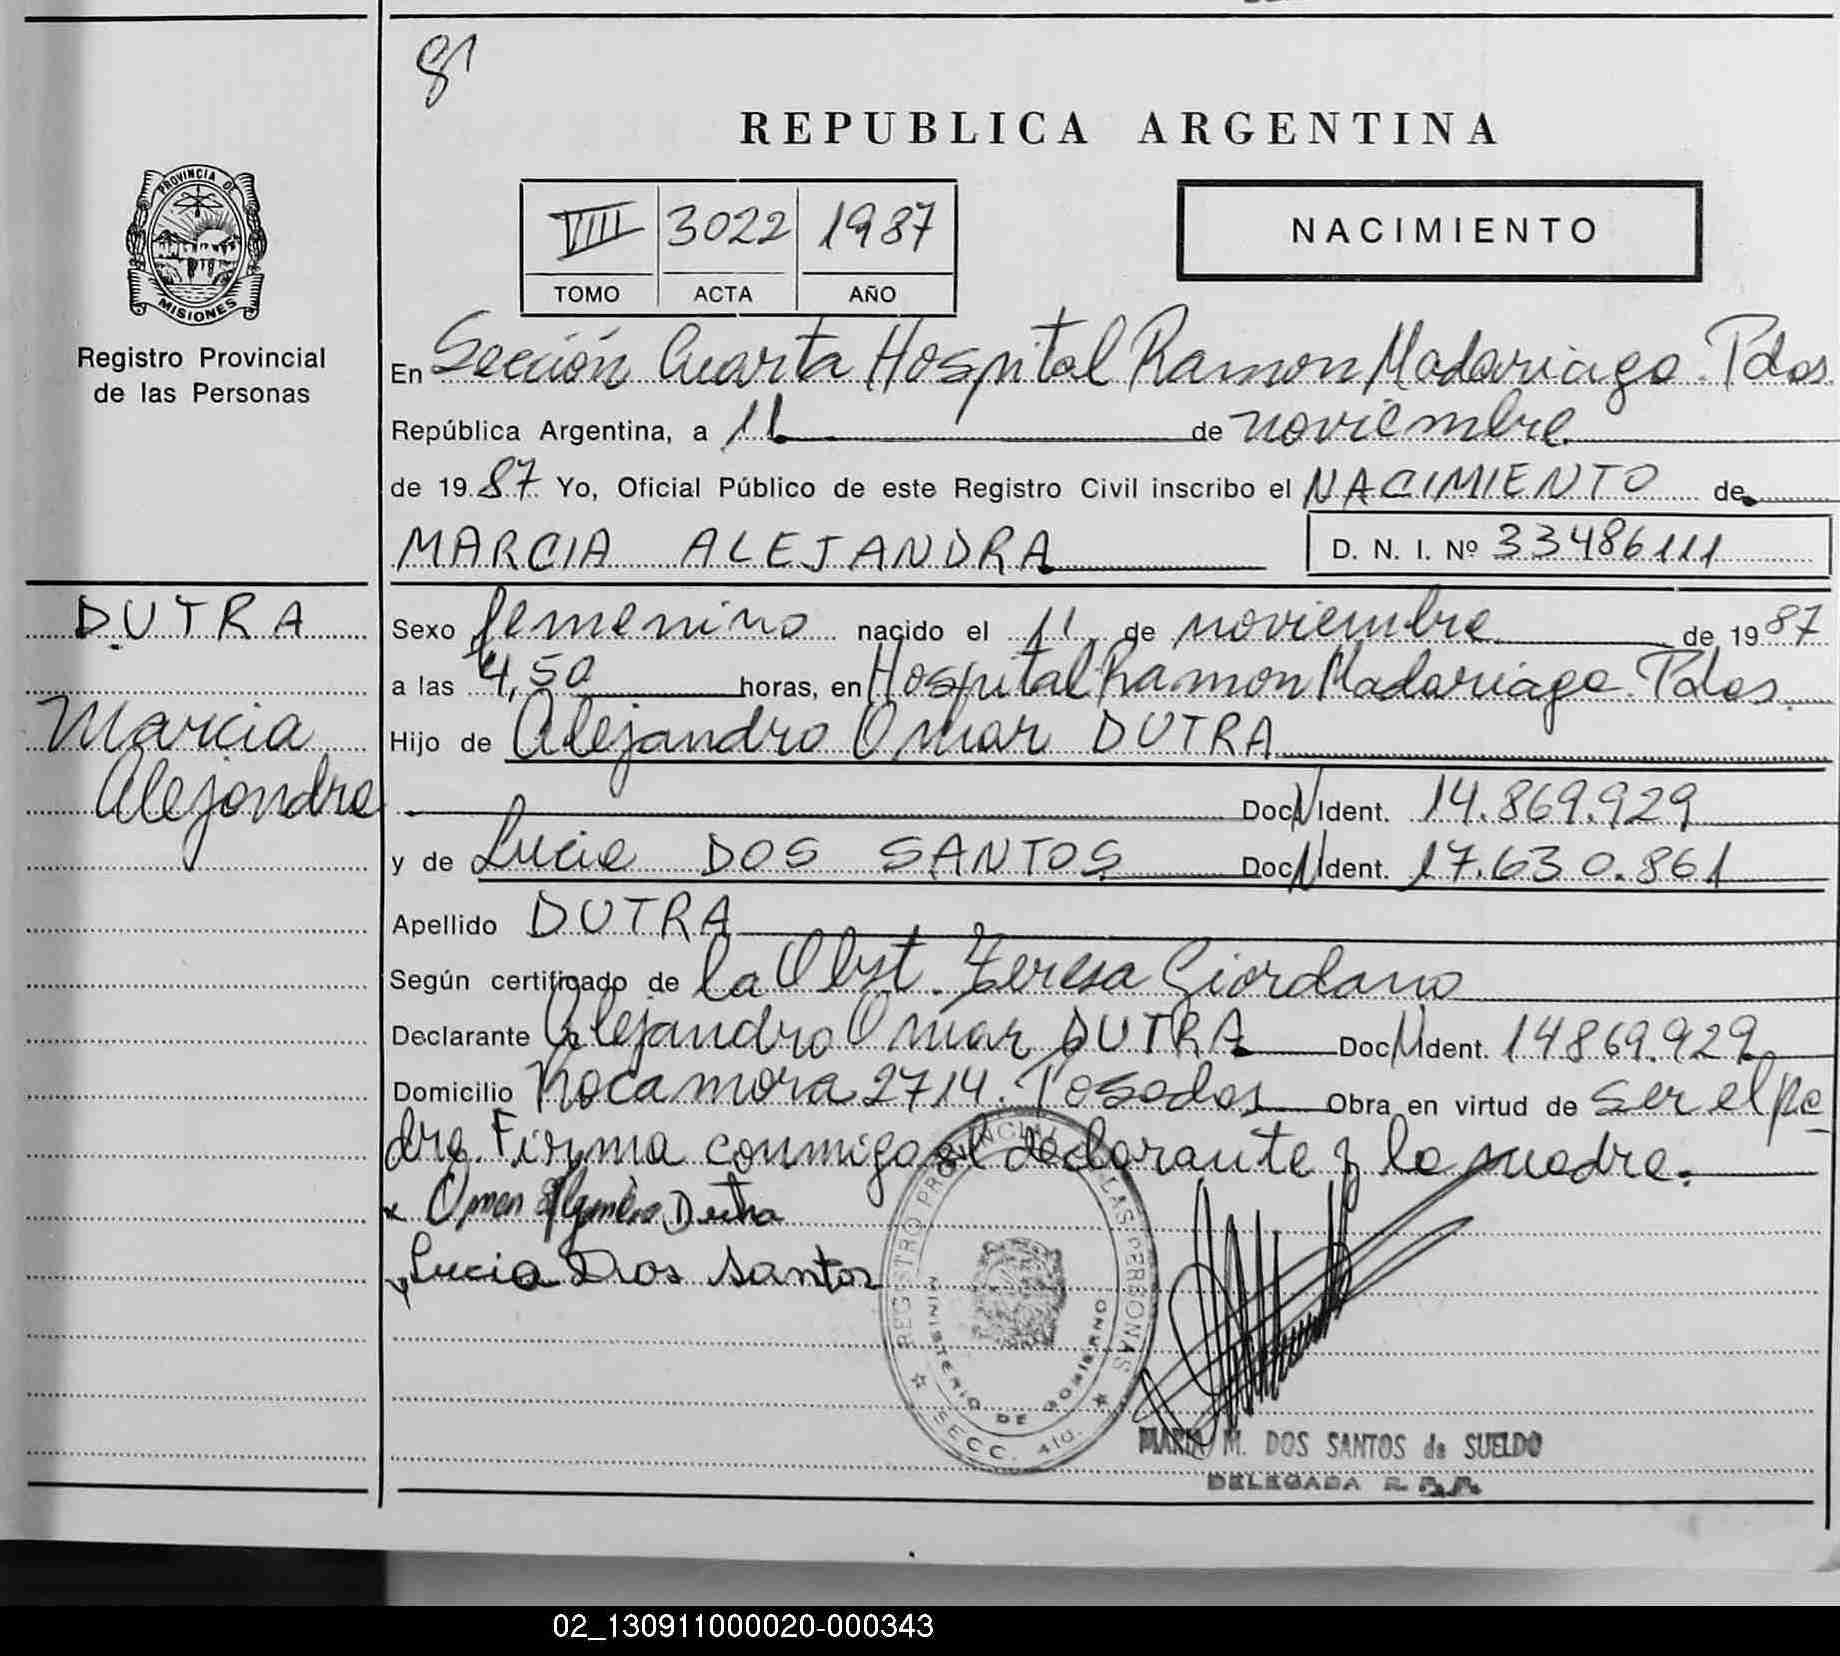 81
REPUBLICA ARGENTINA
PROVINCIA DE
MISIONES
Registro Provincial
de las Personas
VIII 3022 1987
TOMO ACTA AÑO
NACIMIENTO
En Sección Cuarta Hospital Ramon Madariaga. Pdas.
República Argentina, a 11 de noviembre
de 1987 Yo, Oficial Público de este Registro Civil inscribo el NACIMIENTO de
MARCIA ALEJANDRA D. N. I. Nº 33486111
DUTRA
Marcia
Alejandra
Sexo femenino nacido el 11 de noviembre de 1987
a las 4,50 horas, en Hospital Ramon Madariaga. Pdas.
Hijo de Alejandro Omar DUTRA
Doc N Ident. 14.869.929
y de Lucia DOS SANTOS Doc N Ident. 17.630.861
Apellido DUTRA
Según certificado de la Obst. Teresa Giordano
Declarante Alejandro Omar DUTRA Doc N Ident. 14869.929
Domicilio Rocamora 2714. Posadas Obra en virtud de ser el pa
dre. Firma conmigo el declarante y la madre.
x Omar Alejandro Dutra
x Lucia Dos Santos
REGISTRO PROVINCIAL DE LAS PERSONAS
MINISTERIO DE GOBIERNO
SECC. 4ta.
MARIA M. DOS SANTOS de SUELDO
DELEGADA R. P. P.
02_130911000020-000343